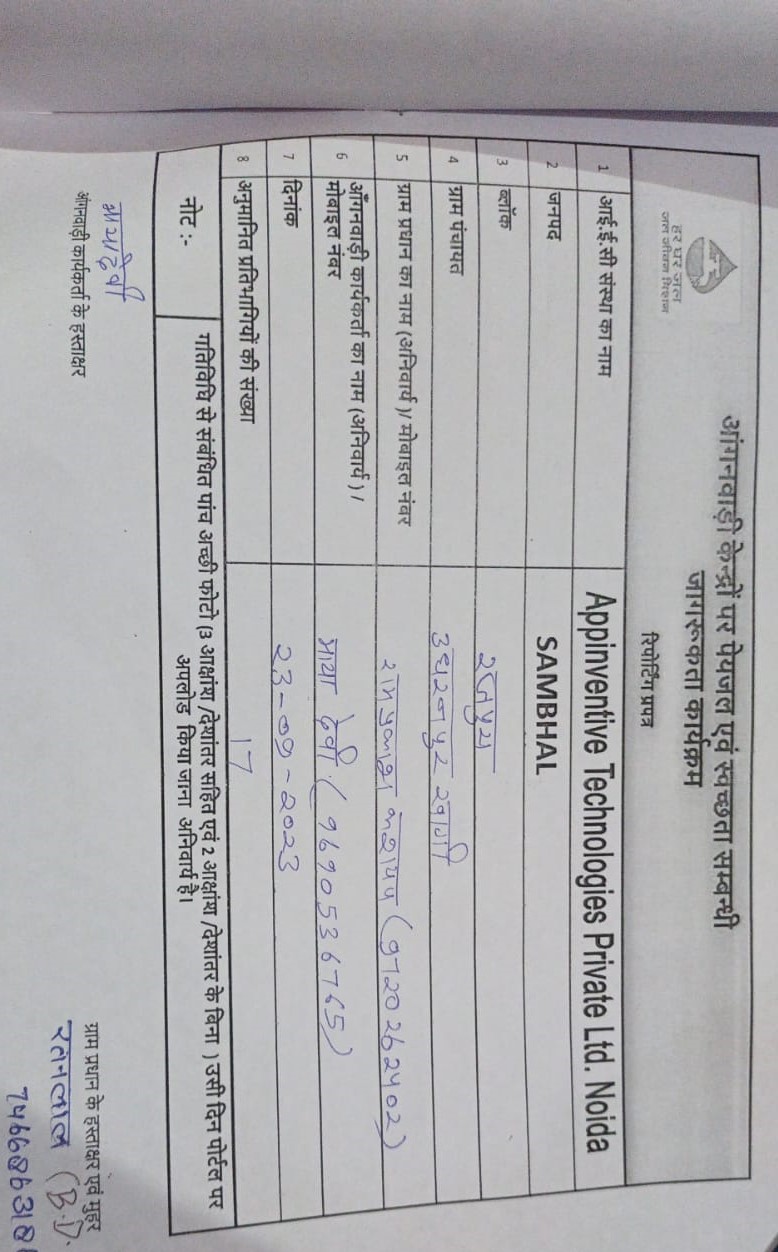 हर घर जल
जल जीवन मिशन
आंगनवाड़ी केन्द्रों पर पेयजल एवं स्वच्छता सम्बन्धी
जागरूकता कार्यक्रम
रिपोर्टिंग प्रपत्र
1 आई.ई.सी संस्था का नाम Appinventive Technologies Private Ltd. Noida
2 जनपद SAMBHAL
3 ब्लॉक रजपुरा
4 ग्राम पंचायत उधरनपुर खागी
5 ग्राम प्रधान का नाम (अनिवार्य )/ मोबाइल नंबर रामप्रकाश कश्यप (9720262402)
6 आँगनवाड़ी कार्यकर्ता का नाम (अनिवार्य ) /
मोबाइल नंबर माया देवी (9690536765)
7 दिनांक 23-09-2023
8 अनुमानित प्रतिभागियों की संख्या 17
नोट :- गतिविधि से संबंधित पांच अच्छी फोटो (3 आक्षांश /देशांतर सहित एवं 2 आक्षांश /देशांतर के बिना ) उसी दिन पोर्टल पर
अपलोड किया जाना अनिवार्य है।
मायादेवी
आंगनवाड़ी कार्यकर्ता के हस्ताक्षर
ग्राम प्रधान के हस्ताक्षर एवं मुहर
रतनलाल (B.D.